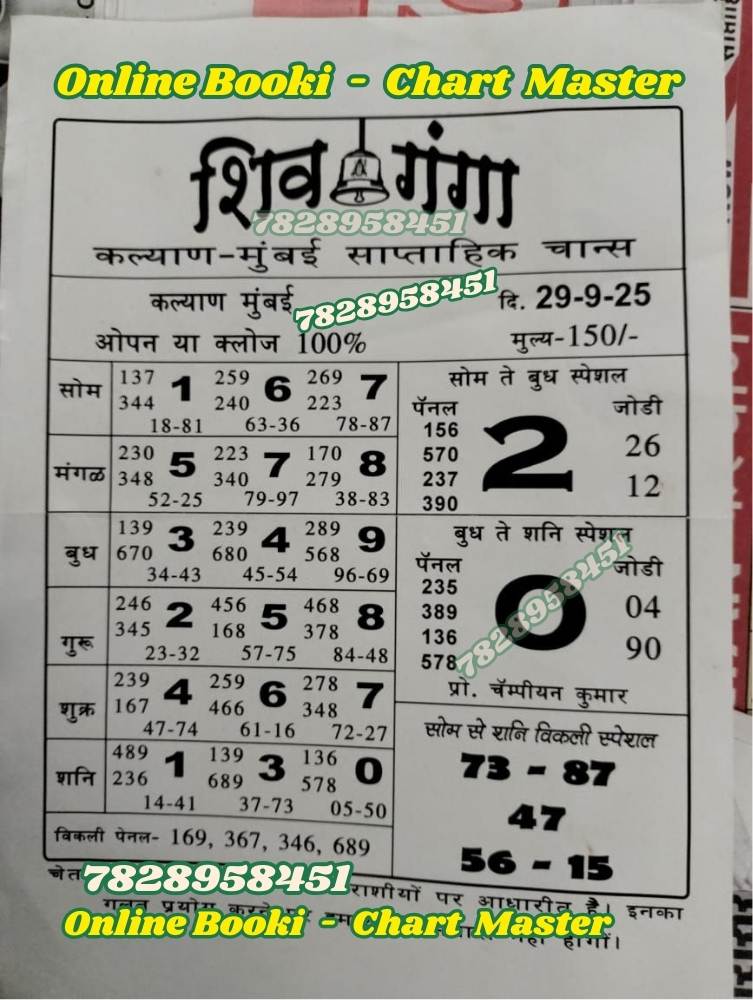 Online Booki - Chart Master
शिव गंगा
7828958451
कल्याण-मुंबई साप्ताहिक चान्स
कल्याण मुंबई
7828958451
दि. 29-9-25
ओपन या क्लोज 100%
मुल्य-150/-
सोम
137 1 259 6 269 7
344 240 223
18-81 63-36 78-87
मंगळ
230 5 223 7 170 8
348 340 279
52-25 79-97 38-83
बुध
139 3 239 4 289 9
670 680 568
34-43 45-54 96-69
गुरू
246 2 456 5 468 8
345 168 378
23-32 57-75 84-48
शुक्र
239 4 259 6 278 7
167 466 348
47-74 61-16 72-27
शनि
489 1 139 3 136 0
236 689 578
14-41 37-73 05-50
विकली पेनल- 169, 367, 346, 689
सोम ते बुध स्पेशल
पॅनल जोडी
156
570
237
390
2
26
12
बुध ते शनि स्पेशल
पॅनल जोडी
235
389
136
578
0
04
90
7828958451
प्रो. चॅम्पीयन कुमार
सोम से शनि विकली स्पेशल
73 - 87
47
56 - 15
7828958451
राशीयों पर आधारीत है। इनका
गलत प्रयोग करने पर
Online Booki - Chart Master